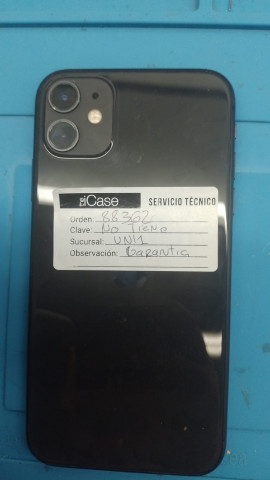 Case
SERVICIO TÉCNICO
Orden: 88362
Clave: No Tiene
Sucursal: UNI1
Observación: Garantia